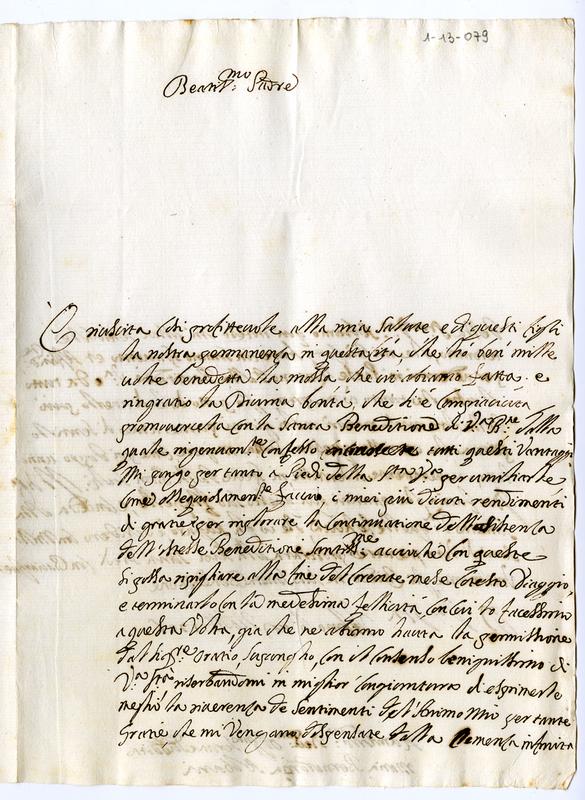 1-13-079
Beat.mo Padre
È riuscita così profittevole alla mia salute e di questi figli
la nostra permanenza in questa Città, che l'ho ben mille
volte benedetta la mossa che vi abiamo fatta e
ringratio la Divina bontà, che si è compiaciuta
promovercela con la Santa Benedittione di V.a S.tà dalla
quale ingenuam.te confesso tutti questi vantaggi
Mi pongo per tanto a Piedi della S.tà V.a per umiliarle
come ossequiosamen.te faccio, i miei più divoti rendimenti
di gratie per implorare la continuatione dell'assistenza
dell'istessa Benedittione Sant.me acciochè con queste
si possa ripigliare alla fine del corente mese cotesto viaggio,
e terminarlo con la medesima felicità, con cui lo facessimo
a questa volta, già che ne abiamo hauta la permissione
dal Sig.re Oratio, con il consenso benignissimo di
V.a S.tà riserbandomi in miglior congiuntura di esprimerle
meglio la riverenza de sentimenti dell'Animo Mio per tante
gratie che mi vengano dispensate dalla Clemenza infinita